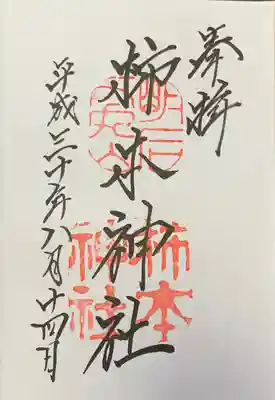 奉拝
柿本神社
平成三十年八月廿四日
明石
人丸山
柿本
神社